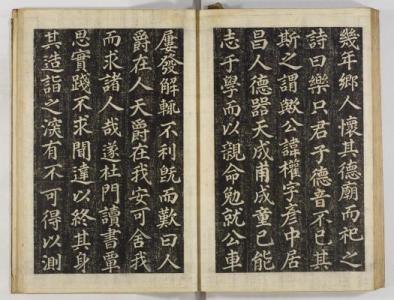 幾年鄉人懷其德廟而祀之
詩曰樂只君子德音不已其
斯之謂歟公諱權字彥中居
昌人德器天成甫成童已能
志于學而以親命勉就公車
屢發解輒不利旣而歎曰人
爵在人天爵在我安可舍我
而求諸人哉遂杜門讀書覃
思實踐不求聞達以終其身
其造詣之深有不可得以測